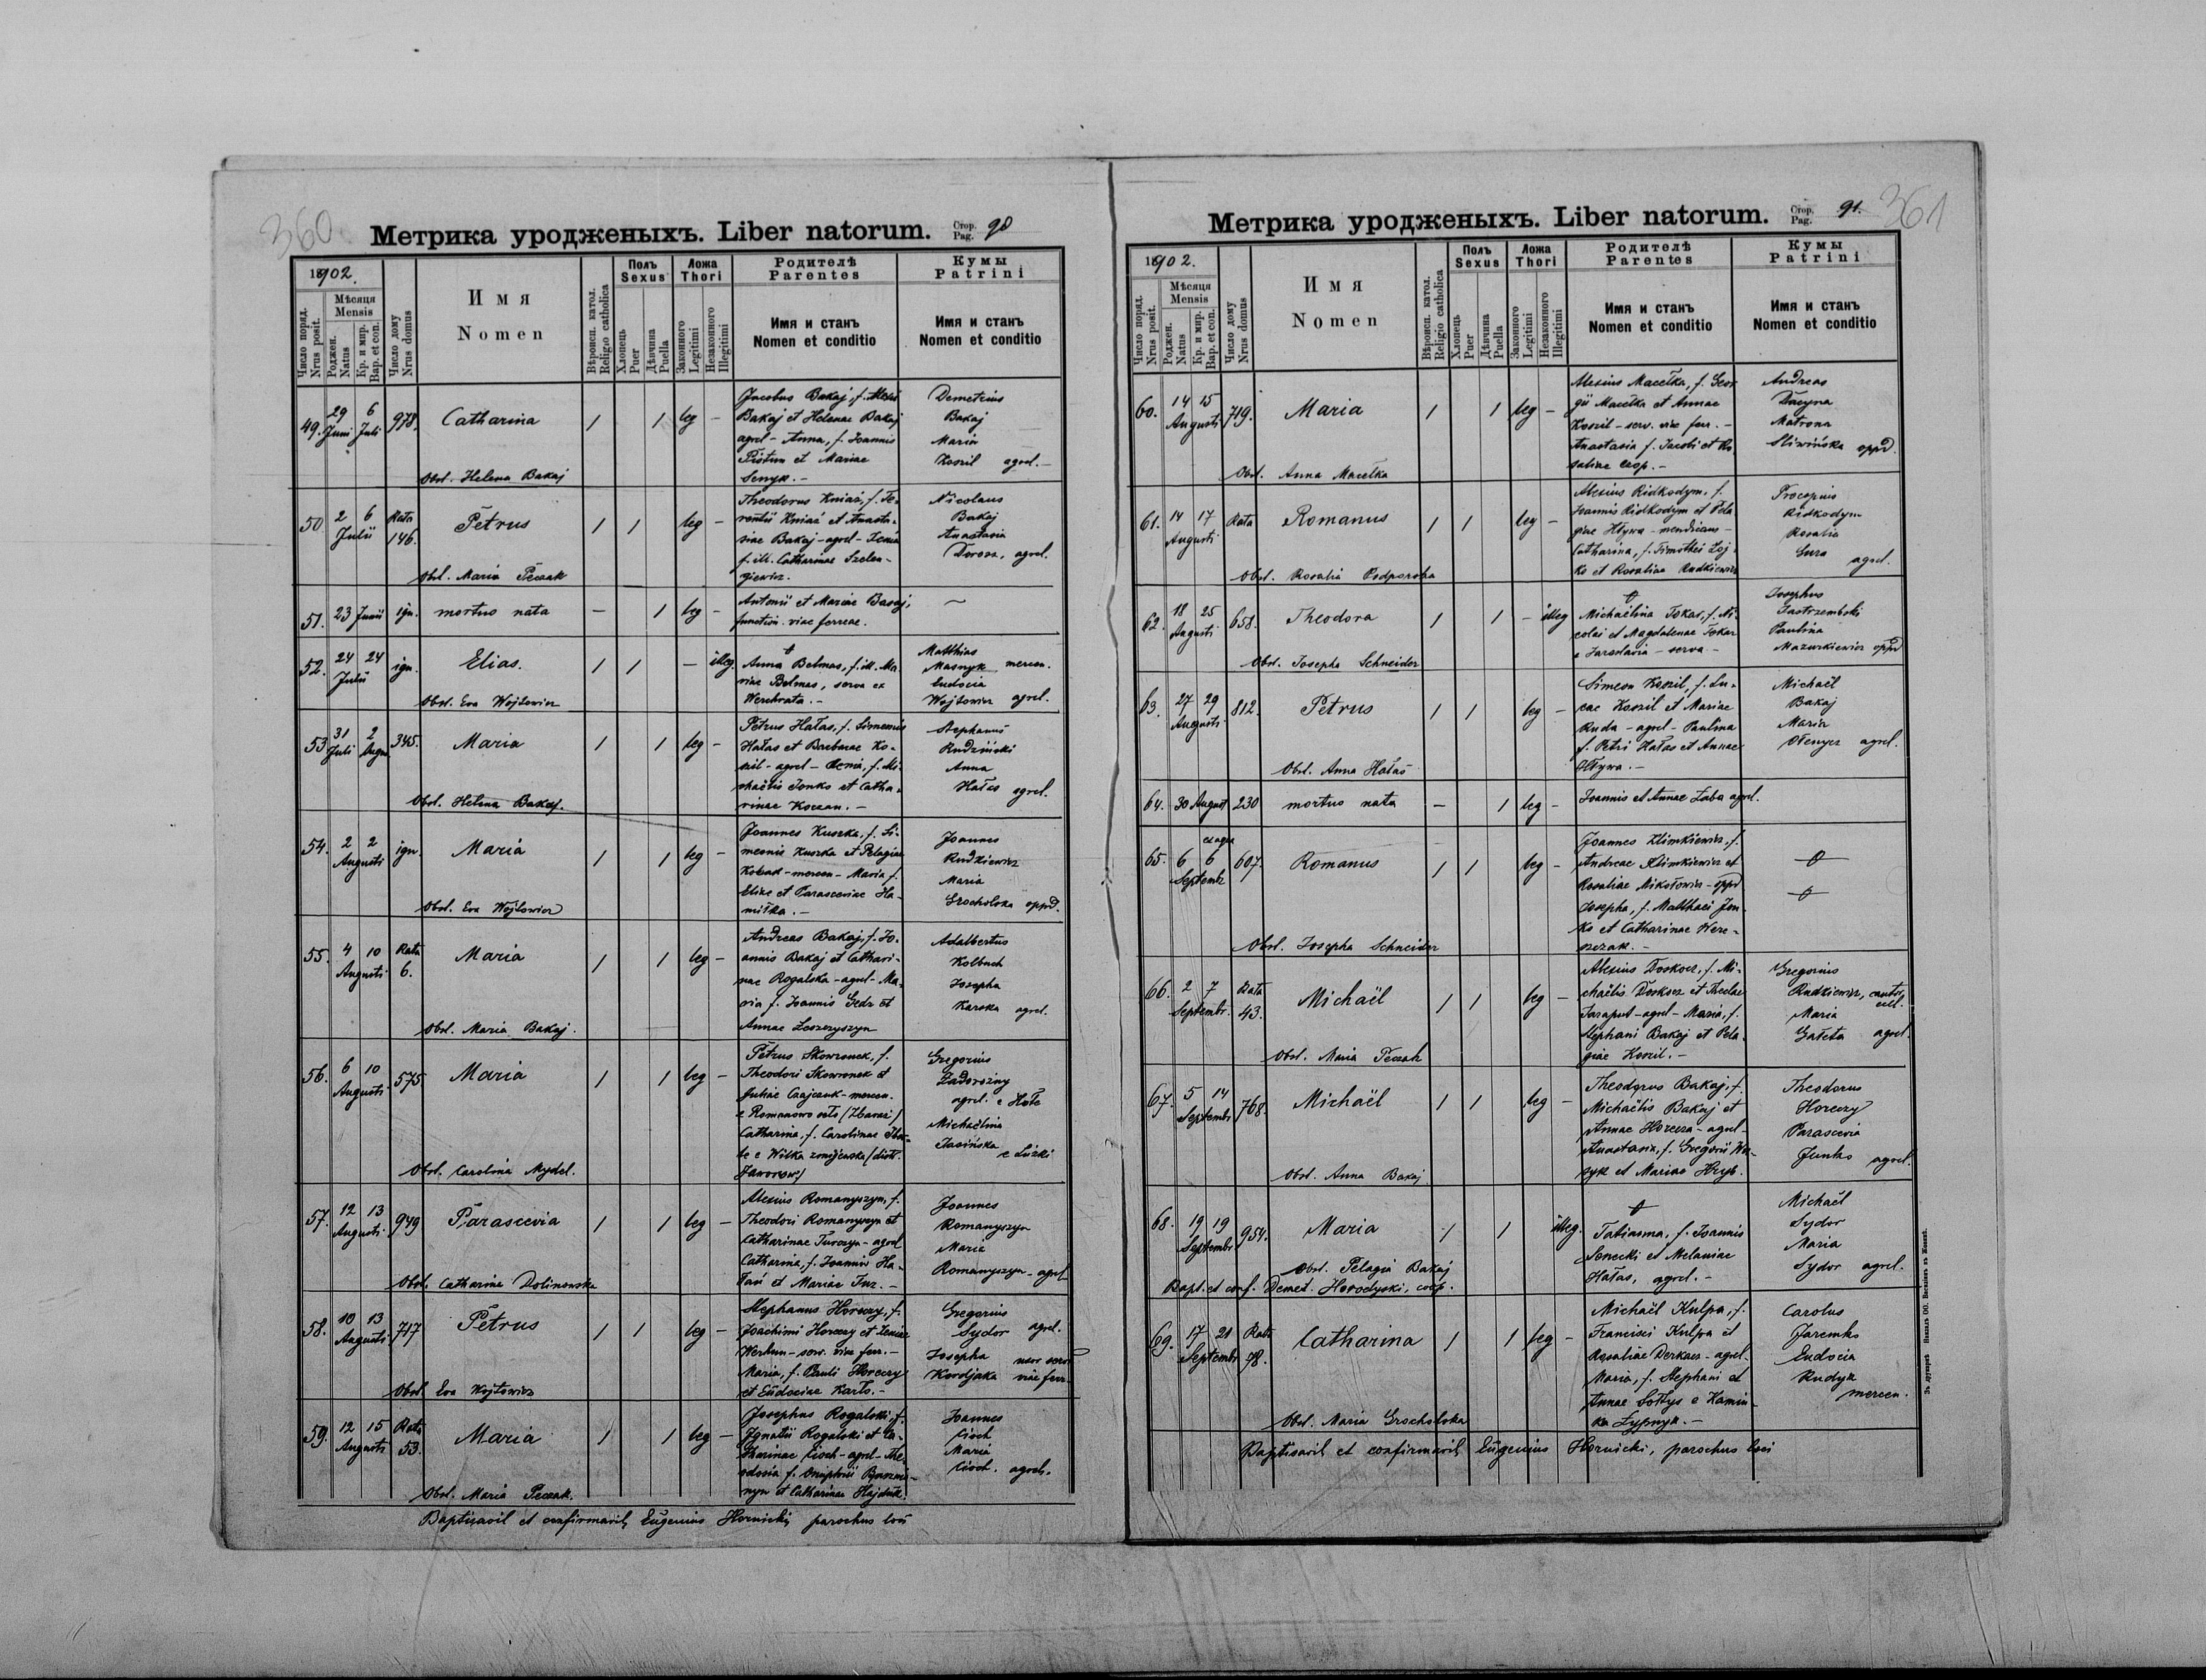 360
Метрика уродженыхъ. Liber natorum.
Стор.
Pag. 90
1902.
Число поряд.
Nrus posit.
Мѣсяця
Mensis
Роджен.
Natus
Кр. и мир.
Bap. et con.
Число дому
Nrus domus
Имя
Nomen
Вѣроисп. катол.
Religio catholica
Полъ
Sexus
Хлопець
Puer
Дѣвчина
Puella
Ложа
Thori
Законного
Legitimi
Незаконного
Illegitimi
Родителѣ
Parentes
Имя и станъ
Nomen et conditio
Кумы
Patrini
Имя и станъ
Nomen et conditio
49. 29 Juni 6 Juli 978. Catharina 1 1 leg -
Jacobus Bakaj, f. Alexii
Bakaj et Helenae Bakaj
agrel - Anna, f. Joannis
et Mariae
Senyk. -
Demetrius
Bakaj
Maria
Koszil agrel. -
Obst. Helena Bakaj
50 2 6 Julii Rata 146. Petrus 1 1 leg -
Theodorus Kniaź, f. Te-
rentii Kniaź et Anasta-
siae Bakaj - agrel - Xenia
f. ill. Catharinae Szelen-
giewicz.
Nicolaus
Bakaj
Anastasia
Dorosz, agrel.
Obst. Maria Peczak
51. 23 Junii ign. mortuo nata - 1 leg -
Antonii et Mariae
function. viae ferreae.
52. 24 24 Julii ign. Elias. 1 1 - illeg.
Anna Belmas, f. ill. Ma-
riae Belmas, serva ex
Werchrata. -
Matthias
Masnyk mercen.
Eudocia
Wojtowicz agrel.
Obst. Eva Wojtowicz
53 31 Juli 2 Augu 345. Maria 1 1 leg -
Petrus Hałas, f. Simeonis
Hałas et Barbarae Ko-
szil - agrel - Xenia, f. Mi-
chaëlis Jonko et Catha-
rinae Koczan. -
Stephanus
Rudziński
Anna
Hałas agrel.
Obst. Helena Bakaj.
54. 2 2 Augusti ign. Maria 1 1 leg -
Joannes Kuszka, f. Si-
meonis Kuszka et Pelagiae
- mercen - Maria f.
Eliae et Parasceviae Ha-
miłka. -
Joannes
Rudkiewicz
Maria
Grocholska oppd.
Obst. Eva Wojtowicz
55. 4 10 Augusti Rata 6. Maria 1 1 leg -
Andreas Bakaj, f. Jo-
annis Bakaj et Cathari-
nae Rogalska - agrel - Ma-
ria f. Joannis Gedz et
Annae Leszczyszyn
Adalbertus
Kolbuch
Josepha
Karska agrel.
Obst. Maria Bakaj.
56. 6 10 Augusti 575 Maria 1 1 leg -
Petrus Skowronek, f.
Theodori Skowronek et
Juliae Czajczuk - mercen.
e Romanowo (Zbaraż)
Catharina, f. Carolinae
e Wólka zmijewska (distr.
Jaworow)
Gregorius
Zadorożny
agrel. e Hole
Michaëlina
Jasińska e Lüzki
Obst. Carolina Mydel.
57. 12 13 Augusti 949 Parascevia 1 1 leg -
Alexius Romanyszyn, f.
Theodori Romanyszyn et
Catharinae Turczyn - agrel
Catharina, f. Joannis Ha-
łasi et Mariae Tuz. -
Joannes
Romanyszyn
Maria
Romanyszyn - agrel
Obst. Catharina Dolinowska
58. 10 13 Augusti 717 Petrus 1 1 leg -
Stephanus Horeczy, f.
Joachimi Horeczy et Xeniae
Werhun - serv. viae ferr. -
Maria, f. Pauli Horeczy
et Eudociae Karlo. -
Gregorius
Sydor agrel.
Josepha uxor servi
Kordjaka viae ferr.
Obst. Eva Wojtowicz
59. 12 15 Augusti Rata 53. Maria 1 1 leg -
Josephus Rogalski, f.
Ignatii Rogalski et Ca-
tharinae Cioch - agrel - The-
odosia f. Onuphrii
et Catharinae Hajduk.
Joannes
Cioch
Maria
Cioch. agrel.
Obst. Maria Peczak.
Baptisavit et confirmavit, Eugenius Hornicki, parochus loci
361
Метрика уродженыхъ. Liber natorum.
Стор.
Pag. 91.
1902.
Число поряд.
Nrus posit.
Мѣсяця
Mensis
Роджен.
Natus
Кр. и мир.
Bap. et con.
Число дому
Nrus domus
Имя
Nomen
Вѣроисп. катол.
Religio catholica
Полъ
Sexus
Хлопець
Puer
Дѣвчина
Puella
Ложа
Thori
Законного
Legitimi
Незаконного
Illegitimi
Родителѣ
Parentes
Имя и станъ
Nomen et conditio
Кумы
Patrini
Имя и станъ
Nomen et conditio
60. 14 15 Augusti 719. Maria 1 1 leg -
Alexius Macełka, f. Geor
gii Macełka et Annae
Koszil - serv. viae ferr. -
Anastasia f. Jacobi et Ro
saliae Czop. -
Andreas
Maczyna
Matrona
Sliwińska oppd.
Obst. Anna Macełka
61. 14 17 Augusti Rata Romanus 1 1 leg -
Alexius Ridkodym, f.
Joannis Ridkodym et Pela
giae Hływa - mendicans -
Catharina, f. Timothei Loj-
ko et Rosaliae Rudkiewicz
Procopius
Ridkodym
Rosalia
Gura
agrel.
Obst. Rosalia Podporska
62. 18 25 Augusti 658. Theodora 1 1 - illeg
Michaëlina Tokar, f. Ni-
colai et Magdalenae Tokar
e Jaroslavia - serva -
Josephus
Jastrzembski
Paulina
Mazurkiewicz oppd
Obst. Josepha Schneider
63. 27 29 Augusti 812. Petrus 1 1 leg -
Simeon Koszil, f. Lu-
cae Koszil et Mariae
Ruda - agrel - Paulina
f. Petri Hałas et Annae
Hływa. -
Michaël
Bakaj
Maria
Ołenycz agrel.
Obst. Anna Hałas
64. 30 August 230 mortuo nata - 1 leg -
Joannis et Annae Zaba agrel.
65. 6 6 Septembr 607. Romanus 1 1 leg -
Joannes Klimkiewicz, f.
Andreae Klimkiewicz et
Rosaliae Mikołowicz - oppd
Josepha, f. Matthaei Jon-
ko et Catharinae Were-
szczak. -
Obst. Josepha Schneider
66. 2 7 Septembr. Rata 43. Michaël 1 1 leg -
Alexius Doskocz, f. Mi-
chaëlis Doskocz et Theclae
Taraput - agrel - Maria, f.
Stephani Bakaj et Pela-
giae Koszil. -
Gregorius
Rudkiewicz, cantor
eccl.
Maria
Gałeta agrel.
Obst. Maria Peczak
67. 5 14 Septembr 768. Michaël 1 1 leg -
Theodorus Bakaj, f.
Michaëlis Bakaj et
Annae Horecza - agrel -
Anastasia, f. Gregorii
et Mariae Hryb.
Theodorus
Horeczy
Parascevia
Junko agrel.
Obst. Anna Bakaj
68. 19 19 Septembr 954. Maria 1 1 illeg.
Tatianna, f. Joannis
Sonecki et Melaniae
Hałas, agrel. -
Michaël
Sydor
Maria
Sydor agrel.
Obst. Pelagia Bakaj
Bapt. et conf. Demet. Horodyski, coop.
69. 17 21 Septembr Rata 78. Catharina 1 1 leg -
Michaël Kulpa, f.
Francisci Kulpa et
Rosaliae Derkacz - agrel -
Maria, f. Stephani et
Annae Sołtys e Kamin-
ka
Carolus
Jaremko
Eudocia
Rudyk
mercen.
Obst. Maria Grocholska
Baptisavit et confirmavit Eugenius Hornicki, parochus loci